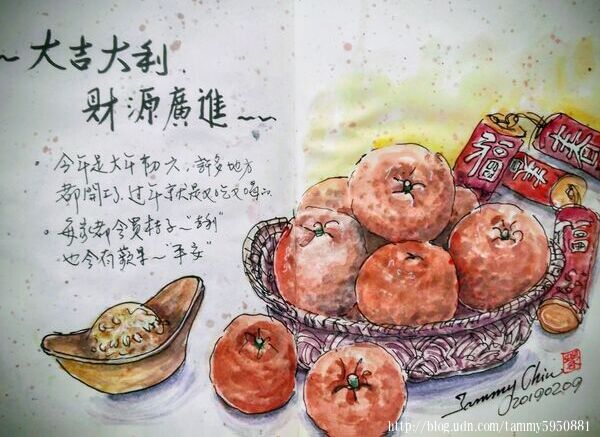 ~大吉大利
財源廣進~~
• 今年是大年初六，許多地方
都開工，過年就是又吃又喝
• 每家都會買桔子~"吉利"
也会有蘋果~"平安"
福
春
富
Tammy Chiu
20190209
http://blog.udn.com/tammy5950881